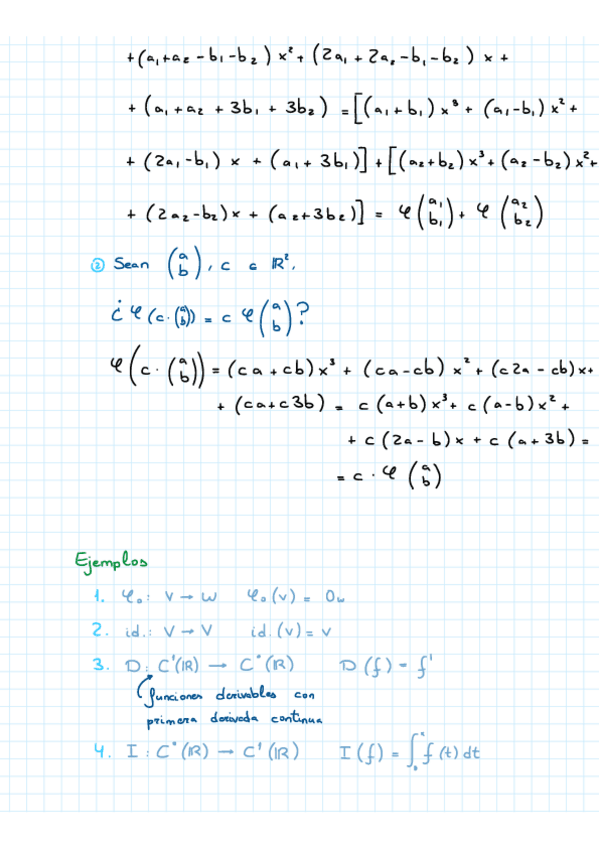 +(a₁+a₂-b₁-b₂) x² + (2a₁ + 2a₂ -b₁ -b₂) x +
+ (a₁ + a₂ + 3b₁ + 3b₂) = [(a₁+b₁) x³ + (a₁-b₁) x² +
+ (2a₁-b₁) x + (a₁+ 3b₁)] + [(a₂+b₂) x³ + (a₂ - b₂) x² +
+ (2a₂-b₂)x + (a₂+3b₂)] = φ(a₁ b₁) + φ(a₂ b₂)
② Sean (a b), c ∈ ℝ².
¿φ(c·(a b)) = c φ(a b)?
φ(c · (a b)) = (ca + cb) x³ + (ca-cb) x² + (c2a - cb)x +
+ (ca+c3b) = c (a+b) x³ + c (a-b) x² +
+ c (2a - b) x + c (a + 3b) =
= c · φ (a b)
Ejemplos
1. φ₀: V → W φ₀(v) = 0w
2. id.: V → V id.(v) = v
3. D: C¹(ℝ) → C°(ℝ) D(f) = f'
funciones derivables con
primera derivada continua
4. I : C°(ℝ) → C¹(ℝ) I(f) = ∫₀ˣ f(t) dt